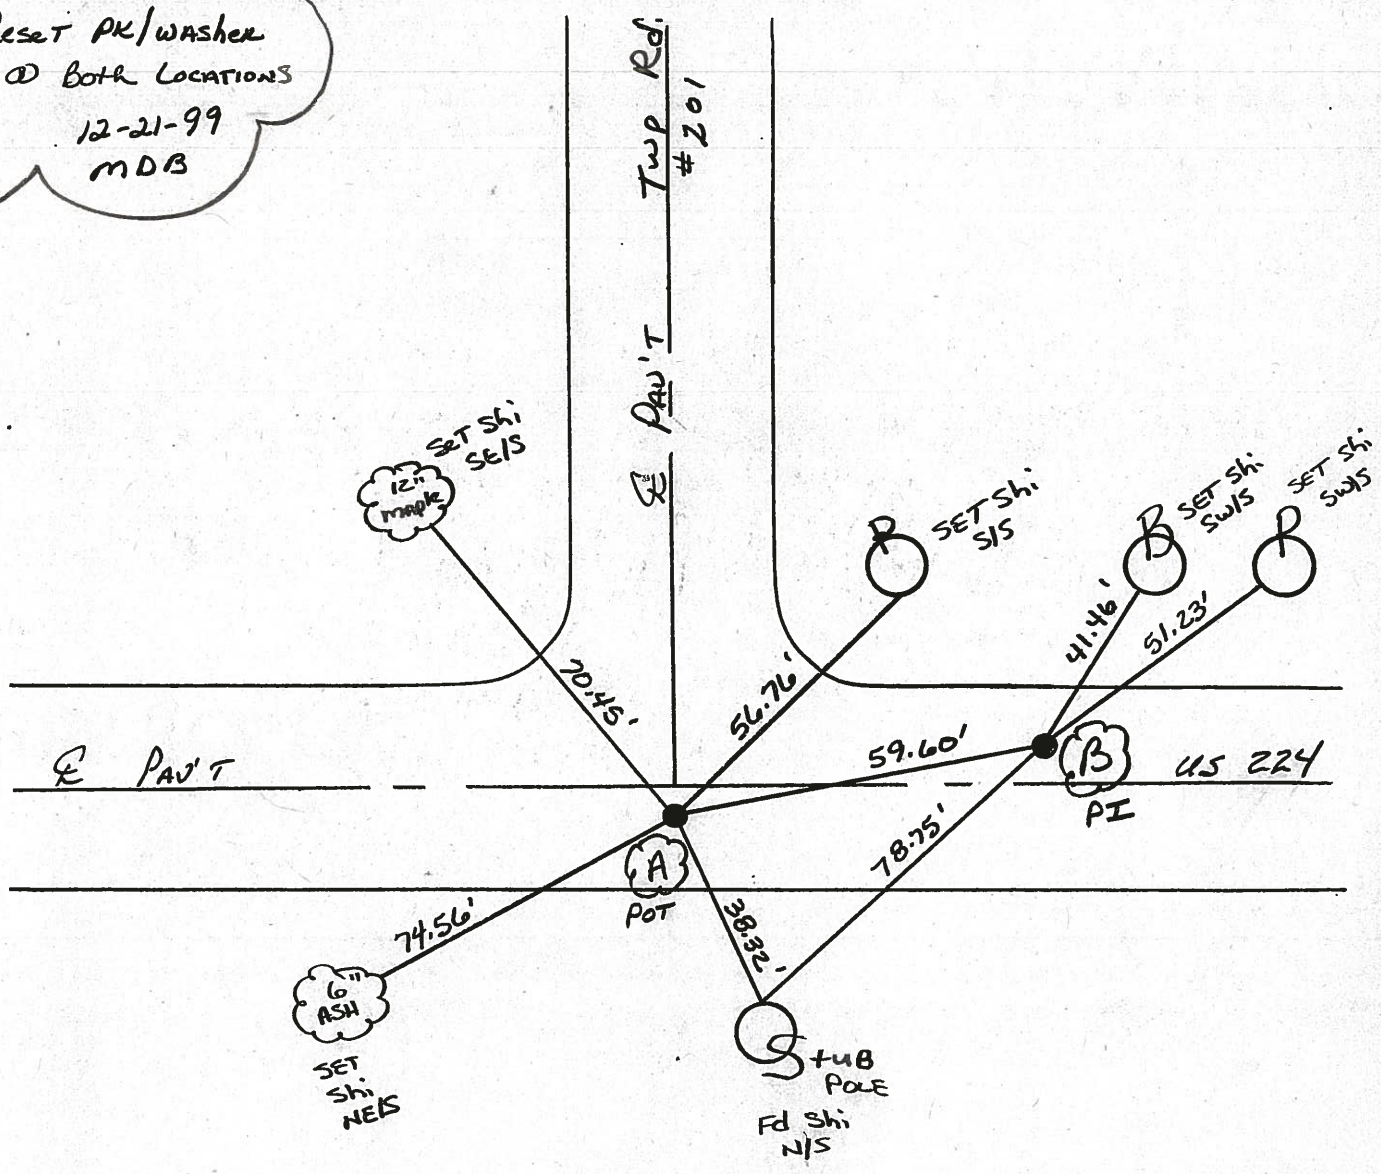 Reset PK/washer
@ Both Locations
12-21-99
MDB
Twp Rd.
#201
℄ Pav't
Set Shi
SE/S
12"
Maple
P
SET Shi
S/S
B
SET Shi
SW/S
P
SET Shi
SW/S
70.45'
56.76'
41.46'
51.23'
59.60'
78.75'
℄ Pav't
B
PI
US 224
A
POT
74.56'
38.32'
6"
ASH
SET
Shi
NE/S
Stub
Pole
Fd Shi
N/S